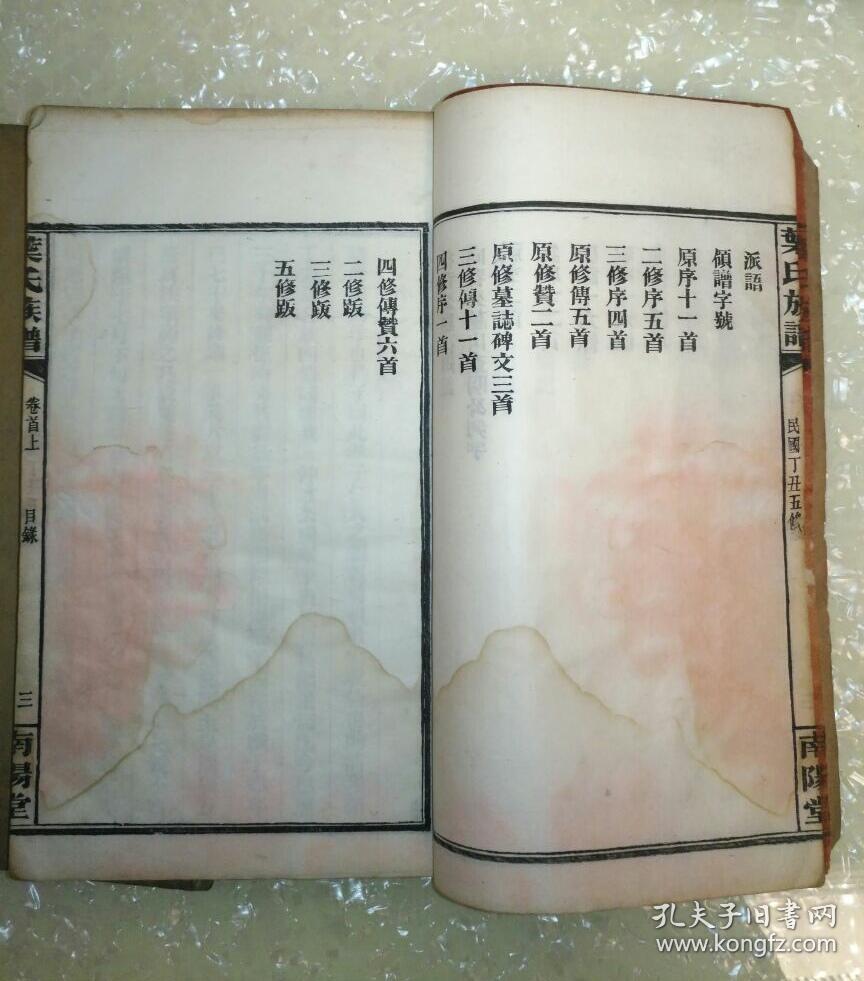 葉氏族譜
民國丁丑五修
南陽堂
派語
領譜字號
原序十一首
二修序五首
三修序四首
原修傳五首
原修贊二首
原修墓誌碑文三首
三修傳十一首
四修序一首
四修傳贊六首
二修跋
三修跋
五修跋
葉氏族譜
卷首上
目錄
三
南陽堂
孔夫子旧书网
www.kongfz.com